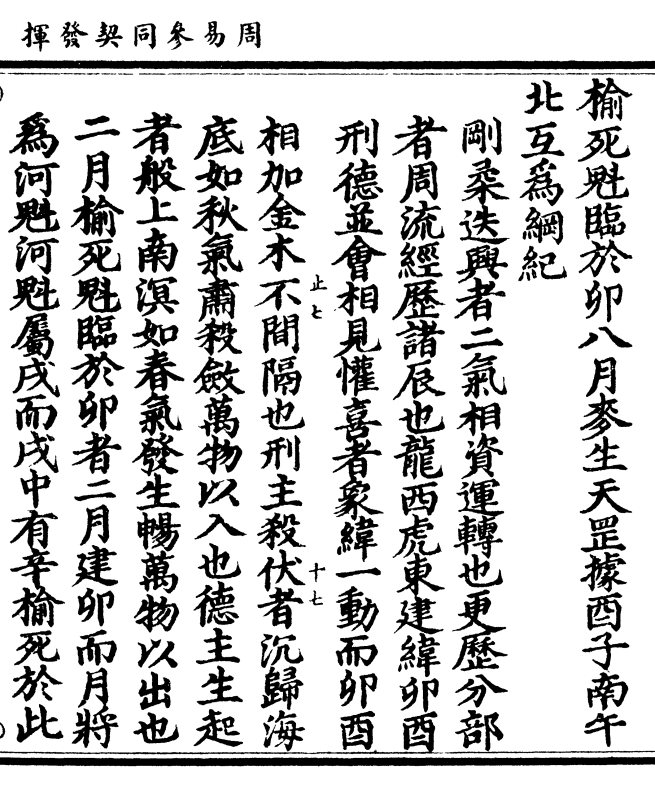 周易參同契發揮
榆死魁臨於卯八月麥生天罡據酉子南午
北互爲綱紀
剛柔迭興者二氣相資運轉也更歷分部
者周流經歷諸辰也龍西虎東建緯卯酉
刑德並會相見懽喜者象緯一動而卯酉
止七
十七
相加金木不間隔也刑主殺伏者沉歸海
底如秋氣肅殺斂萬物以入也德主生起
者般上南溟如春氣發生暢萬物以出也
二月榆死魁臨於卯者二月建卯而月將
爲河魁河魁屬戌而戌中有辛榆死於此